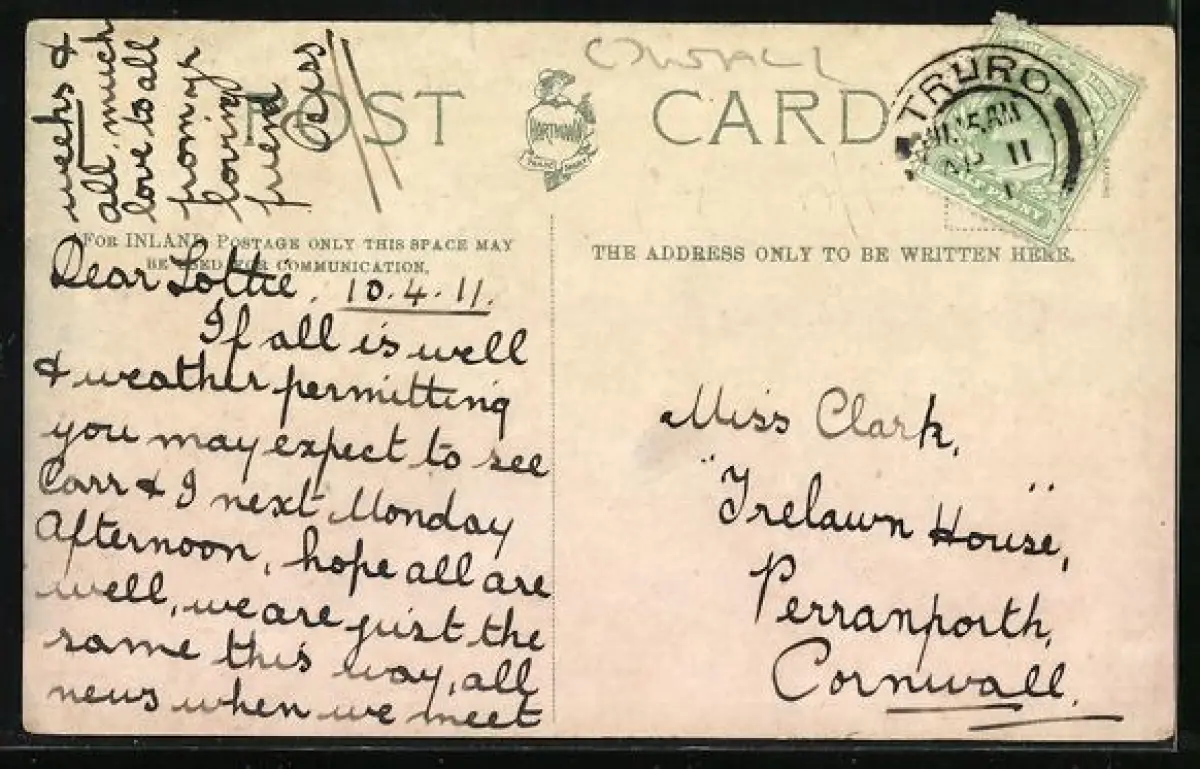 POST CARD
Cornwall
HARTMANN
TRADE MARK
TRURO
AM
AP 11
FOR INLAND POSTAGE ONLY THIS SPACE MAY
BE USED FOR COMMUNICATION.
THE ADDRESS ONLY TO BE WRITTEN HERE.
Dear Lottie, 10.4.11.
If all is well
& weather permitting
you may expect to see
Carr & I next Monday
Afternoon, hope all are
well, we are just the
same this way, all
news when we meet
weeks &
all, much
love to all
from yr
loving
friend
Miss Clark,
"Trelawn House",
Perranporth,
Cornwall.